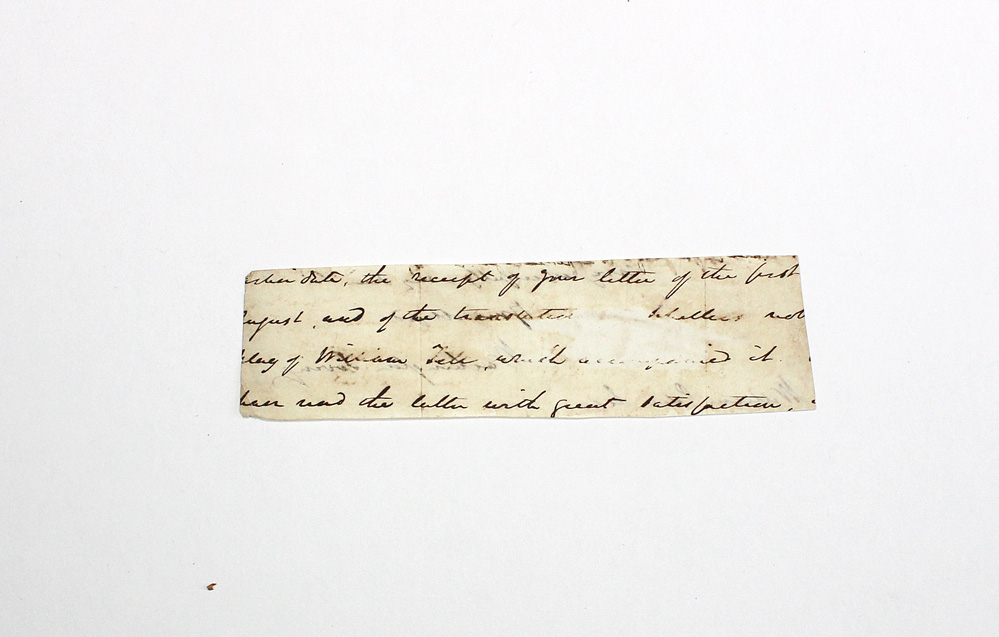 date, the receipt of your letter of the first
August, and of the translation Schillers
play of William Tell, which accompanied it.
have read the latter with great satisfaction,